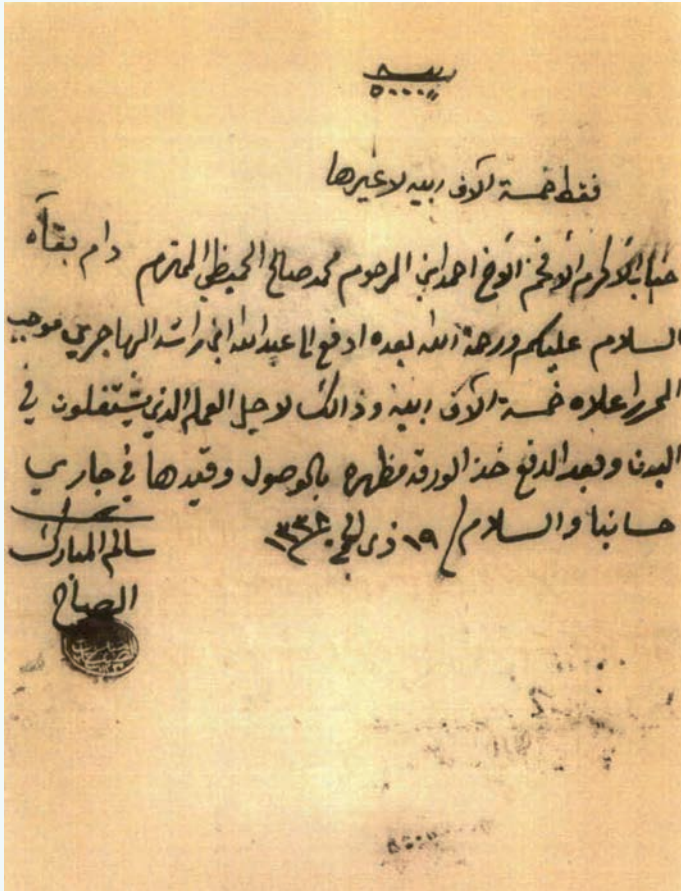 ربيه
٥٠٠٠
فقط خمسة آلاف ربيه لا غيرها
جناب الأكرم الأفخم الأخ احمد ابن المرحوم محمد صالح الحميظي المحترم دام بقآه
السلام عليكم ورحمة الله بعده ادفع الا عبد الله ابن راشد الهاجري موجب
المحرر اعلاه خمسة آلاف ربية وذالك لاجل العمله الذي يشتغلون في
البدن وبعد الدفع خذ الورقه مظهره بالوصول وقيدها في جاري
حسابنا والسلام / ١٩ ذي الحج
سالم المبارك
الصباح